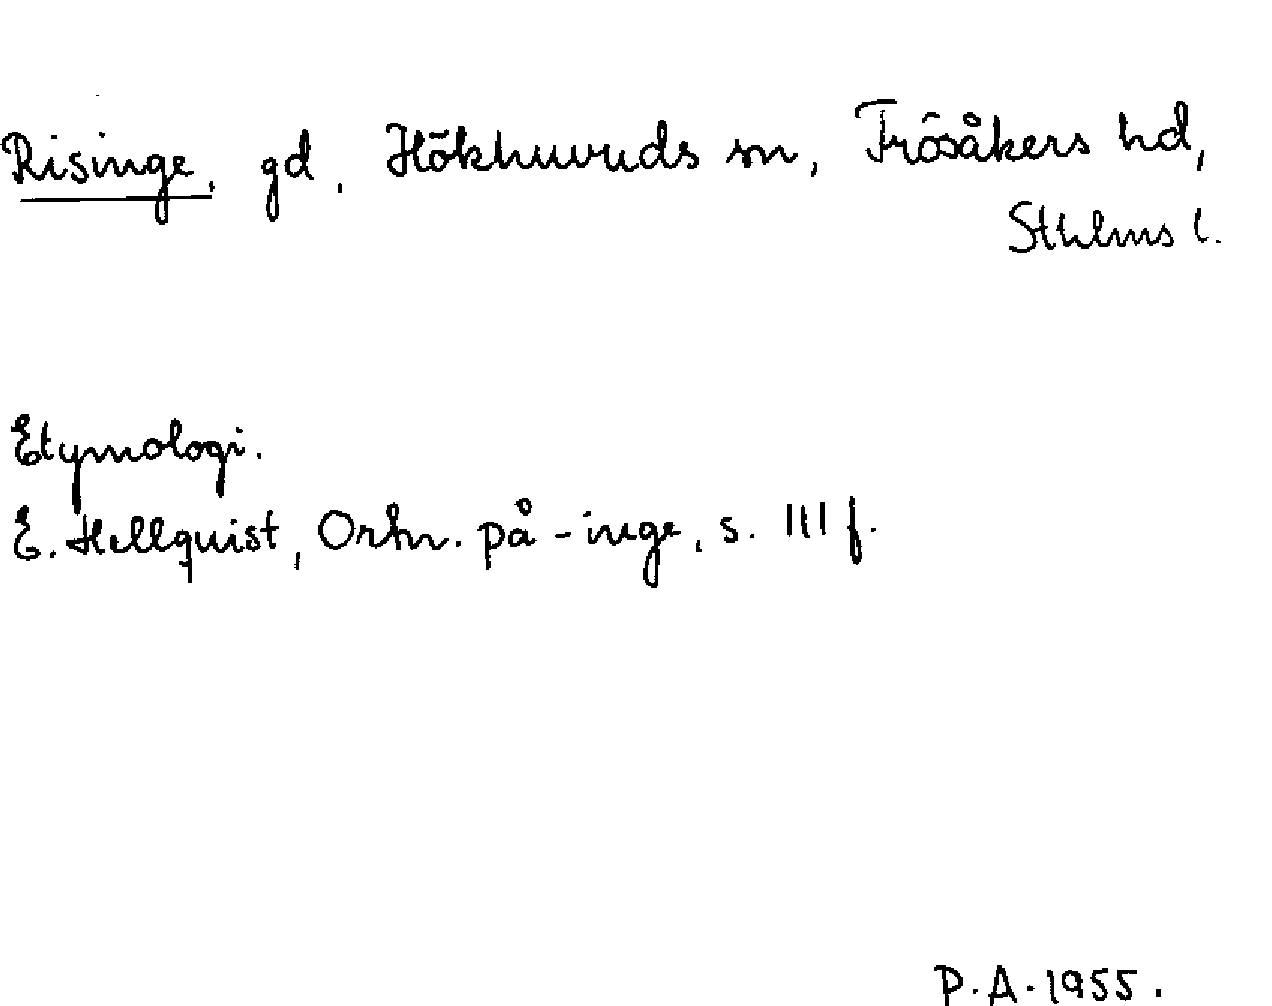 Risinge, gd, Hökhuvuds sn, Frösåkers hd,
Sthlms l.
Etymologi.
E. Hellquist, Ortn. på -inge, s. 111 f.
P.A. 1955.